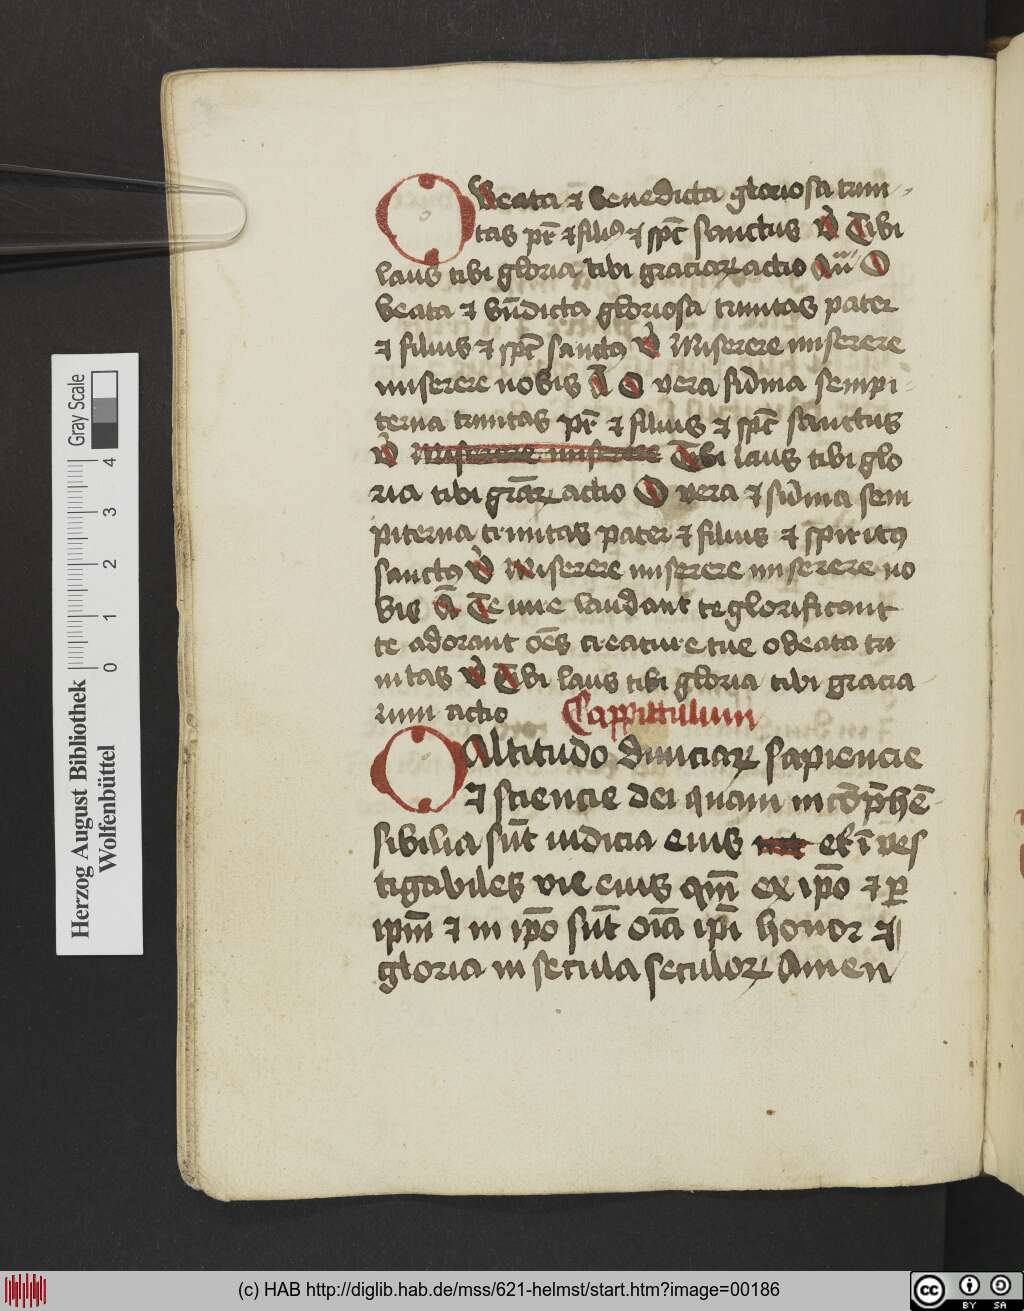 O Beata ⁊ benedicta gloriosa trini
tas pr̄ ⁊ filiꝰ ⁊ sp̄c sanctus V̓ Tibi
laus tibi gloria tibi graciaꝝ actio An̄ O
beata ⁊ bn̄dicta gloriosa trinitas pater
⁊ filius ⁊ sp̄c sanctꝰ V̓ Miserere miserere
miserere nobis A̅ O vera sum̄a sempi
terna trinitas pr̄ ⁊ filius ⁊ sp̄c sanctus
V̓ Miserere miserere Tibi laus tibi glo
ria tibi gr̄aꝝ actio O vera ⁊ sum̄a sem
piterna trinitas pater ⁊ filius ⁊ spiritꝰ
sanctꝰ V̓ Miserere miserere miserere no
bis A̅ Te iure laudant te glorificant
te adorant oēs creature tue o beata tri
nitas V̓ Tibi laus tibi gloria tibi gracia
rum actio Cappittulum
O Altitudo diuiciaꝝ sapiencie
⁊ sciencie dei quam incōp̄hē
sibilia sūt iudicia eius et ī ves
tigabiles vie eius qm̄ ex ip̄o ⁊ ꝑ
ipm̄ ⁊ in ip̄o sūt oīa ip̄i honor ⁊
gloria in secula seculoꝝ Amen
Gray Scale
0 1 2 3 4
Herzog August Bibliothek
Wolfenbüttel
(c) HAB http://diglib.hab.de/mss/621-helmst/start.htm?image=00186
cc BY SA